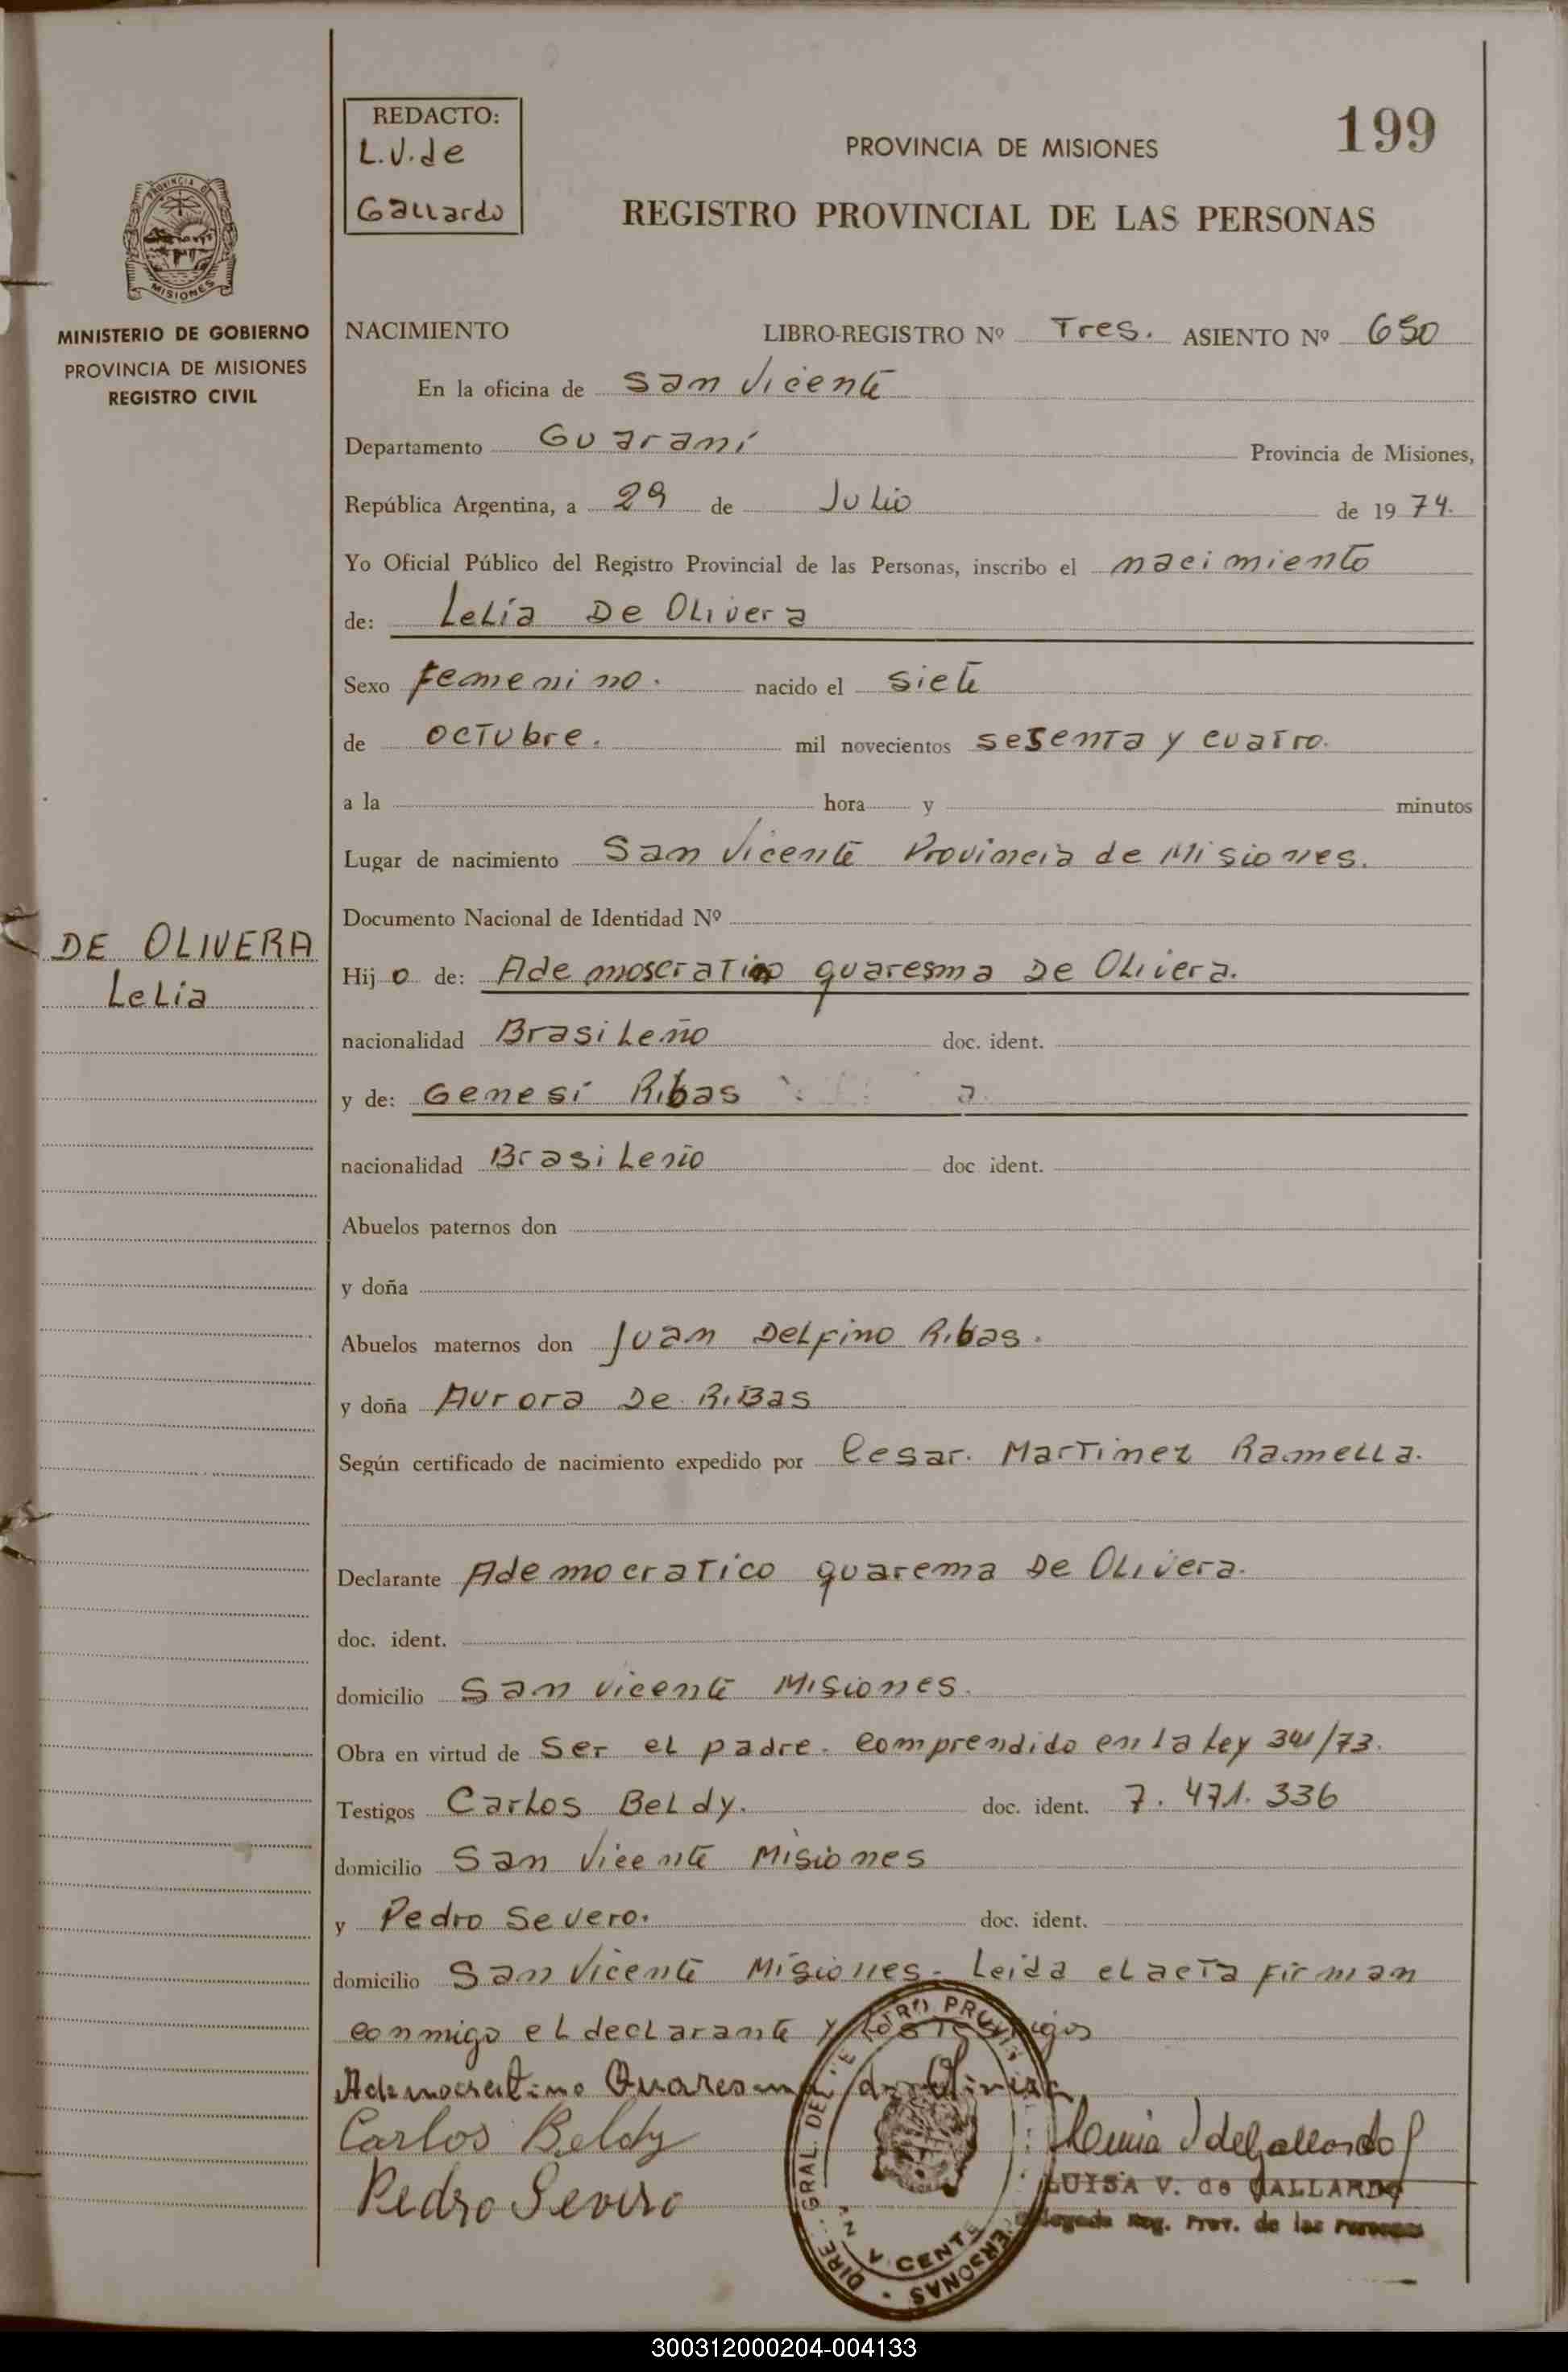 REDACTO:
L.V.de
Gallardo
199
PROVINCIA DE MISIONES
REGISTRO PROVINCIAL DE LAS PERSONAS
PROVINCIA DE
MISIONES
MINISTERIO DE GOBIERNO
PROVINCIA DE MISIONES
REGISTRO CIVIL
NACIMIENTO LIBRO-REGISTRO Nº Tres. ASIENTO Nº 650
En la oficina de San Vicente
Departamento Guaraní Provincia de Misiones,
República Argentina, a 29 de Julio de 1974.
Yo Oficial Público del Registro Provincial de las Personas, inscribo el nacimiento
de: Lelia De Olivera
Sexo femenino. nacido el siete
de octubre. mil novecientos sesenta y cuatro.
a la hora y minutos
Lugar de nacimiento San Vicente Provincia de Misiones.
Documento Nacional de Identidad Nº
DE OLIVERA
Lelia
Hijo de: Ademoscratino quaresma De Olivera.
nacionalidad Brasileño doc. ident.
y de: Genesí Ribas a
nacionalidad Brasileño doc ident.
Abuelos paternos don
y doña
Abuelos maternos don Juan Delfino Ribas.
y doña Aurora De Ribas
Según certificado de nacimiento expedido por Cesar. Martinez Ramella.
Declarante Ademocratico quarema De Olivera.
doc. ident.
domicilio San Vicente Misiones.
Obra en virtud de Ser el padre. comprendido en la Ley 341/73.
Testigos Carlos Beldy. doc. ident. 7.471.336
domicilio San Vicente Misiones
y Pedro Severo. doc. ident.
domicilio San Vicente Misiones. Leida el acta firman
conmigo el declarante y los testigos
Ademocratino Quaresma de Olivera
Carlos Beldy
Pedro Severo
LUISA V. de GALLARDO
Delegada Reg. Prov. de las Personas
300312000204-004133